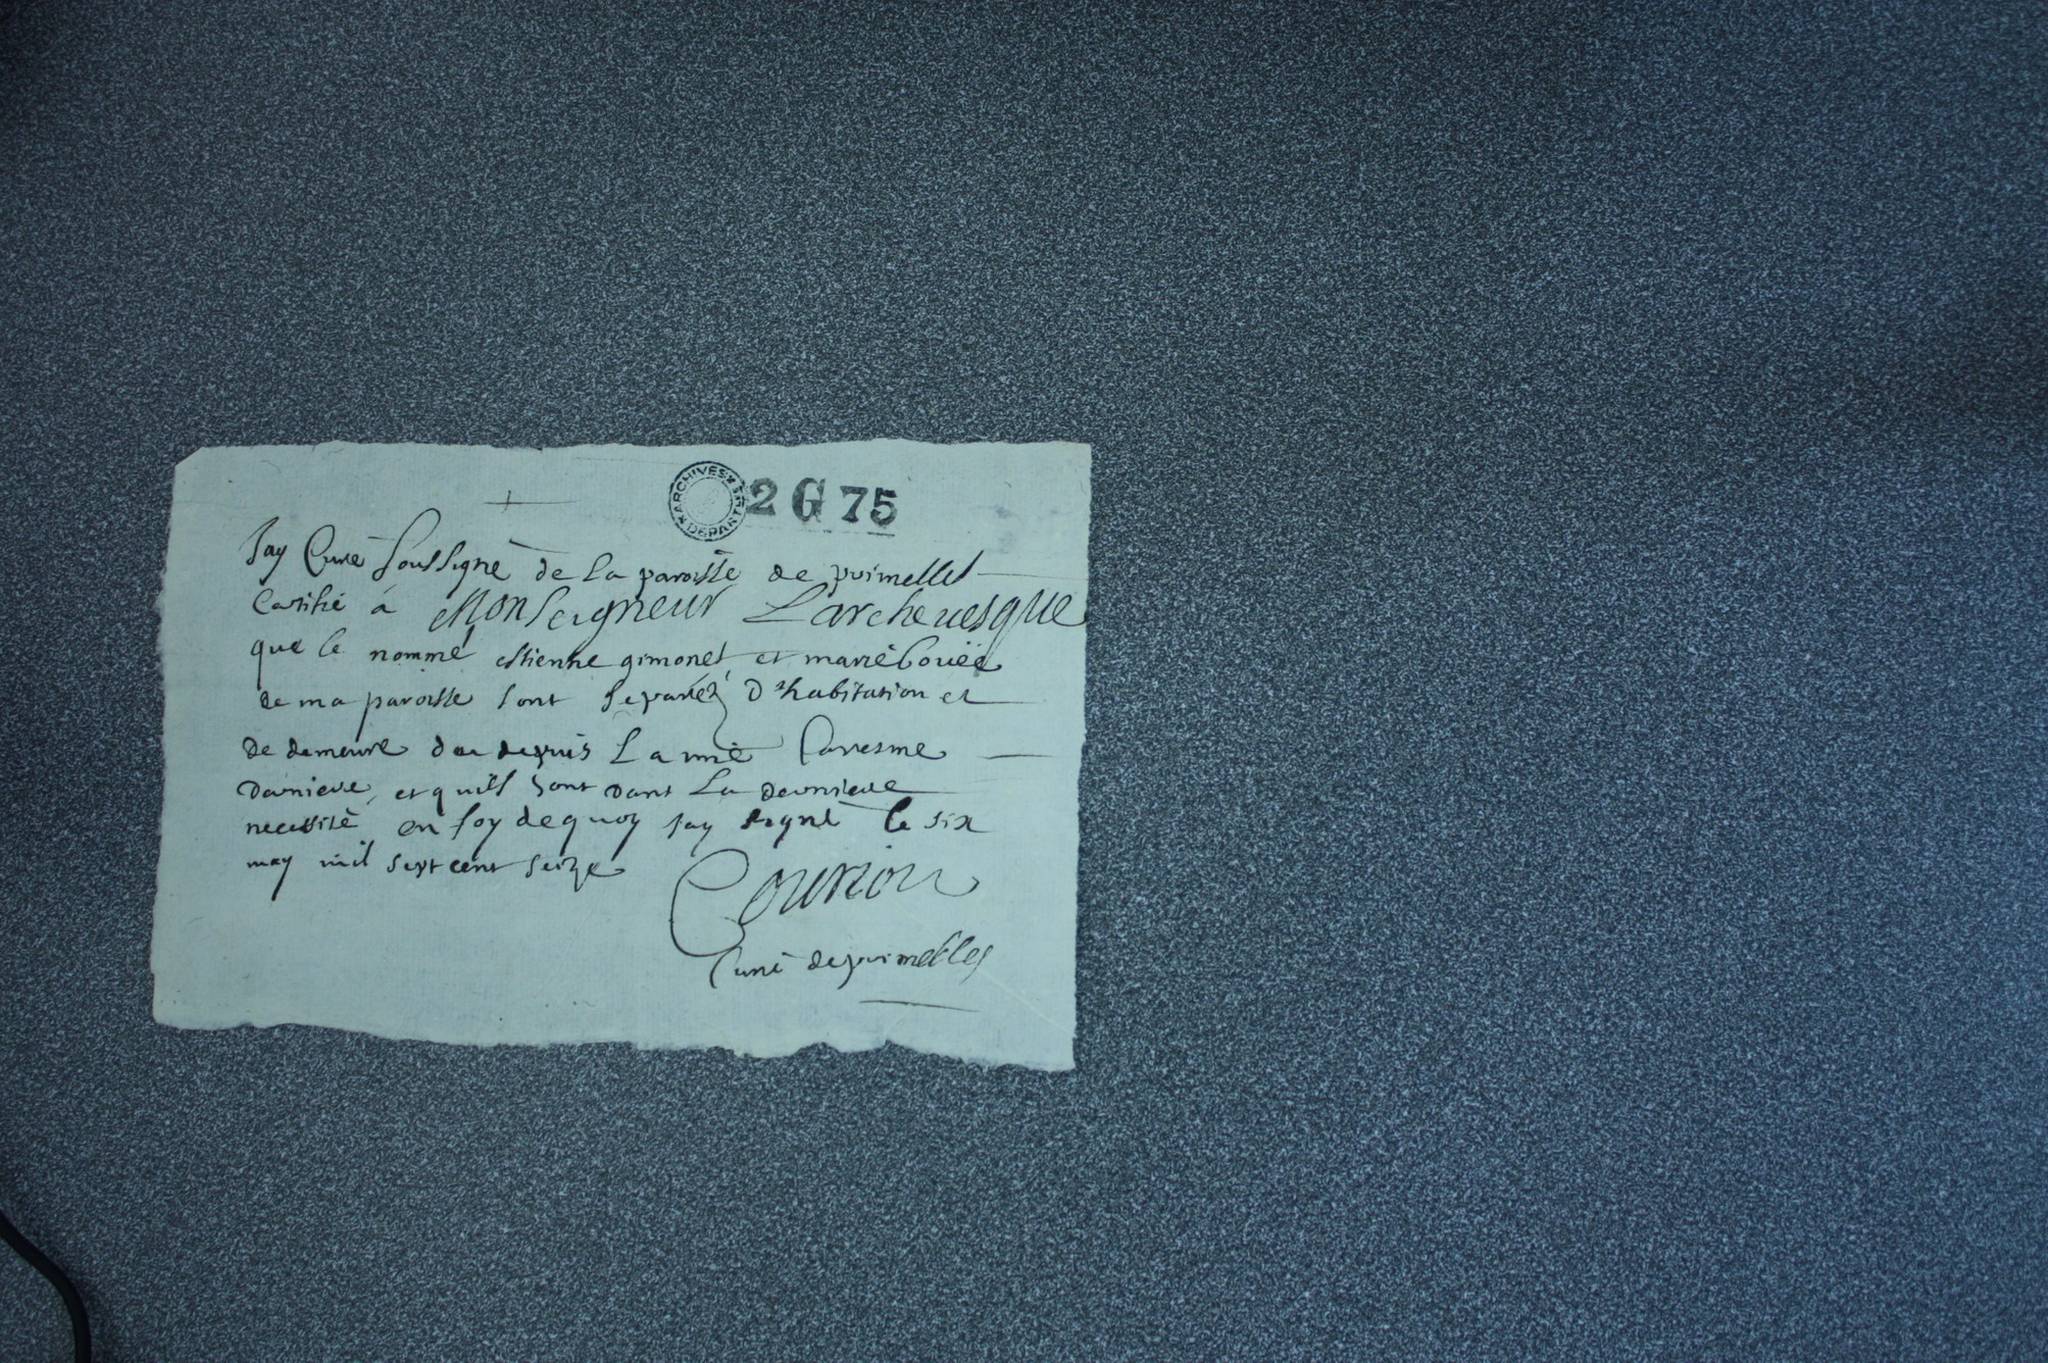 +
ARCHIVES DEPART
2 G 75
Jay Curé soussigné de la paroisse de puimelles
Certifié à Monseigneur Larchevesque
que le nommé estienne gimonet et marie bouée
de ma paroisse sont separéz d'habitation et
de demeure depuis La mie Caresme
derniere, et quils sont dans La derniere
necessité en foy de quoy jay signé le six
may mil sept cent seize
Courion
Curé de puimelles